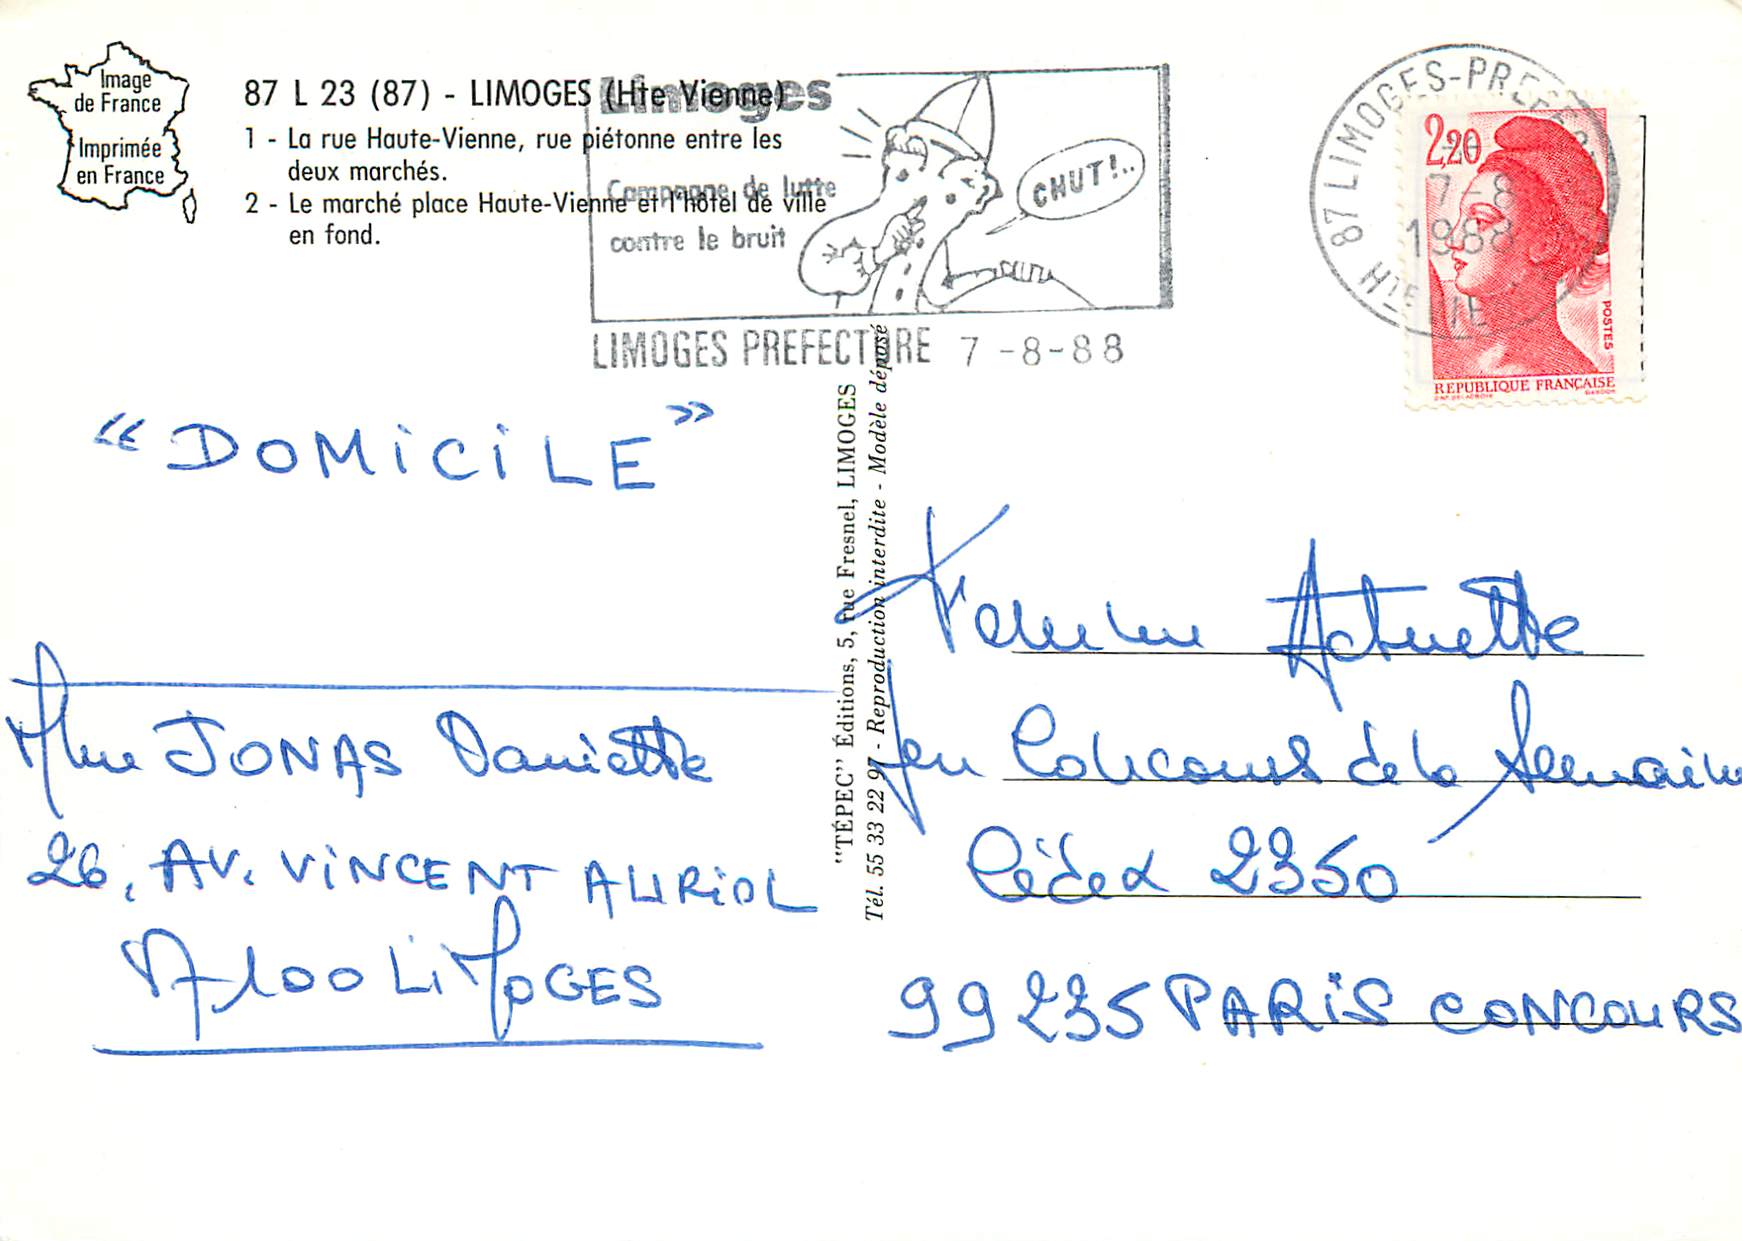 Image
de France
Imprimée
en France
87 L 23 (87) - LIMOGES (Hte Vienne)
1 - La rue Haute-Vienne, rue piétonne entre les
deux marchés.
2 - Le marché place Haute-Vienne et l'hôtel de ville
en fond.
Limoges
Campagne de lutte
contre le bruit
CHUT!..
LIMOGES PREFECTURE 7-8-88
87 LIMOGES-PREFECT
7-8
1988
HTE VIE
2,20
POSTES
REPUBLIQUE FRANÇAISE
"DOMiCiLE"
"TÉPEC" Éditions, 5, rue Fresnel, LIMOGES
Tél. 55 33 22 97 - Reproduction interdite - Modèle déposé
Mme JONAS Daniette
26, AV. ViNCENT AURiOL
87100 LiMOGES
Femme Actuelle
Jeu Concours de la Semaine
Cédex 2350
99235 PARiS CONCOURS